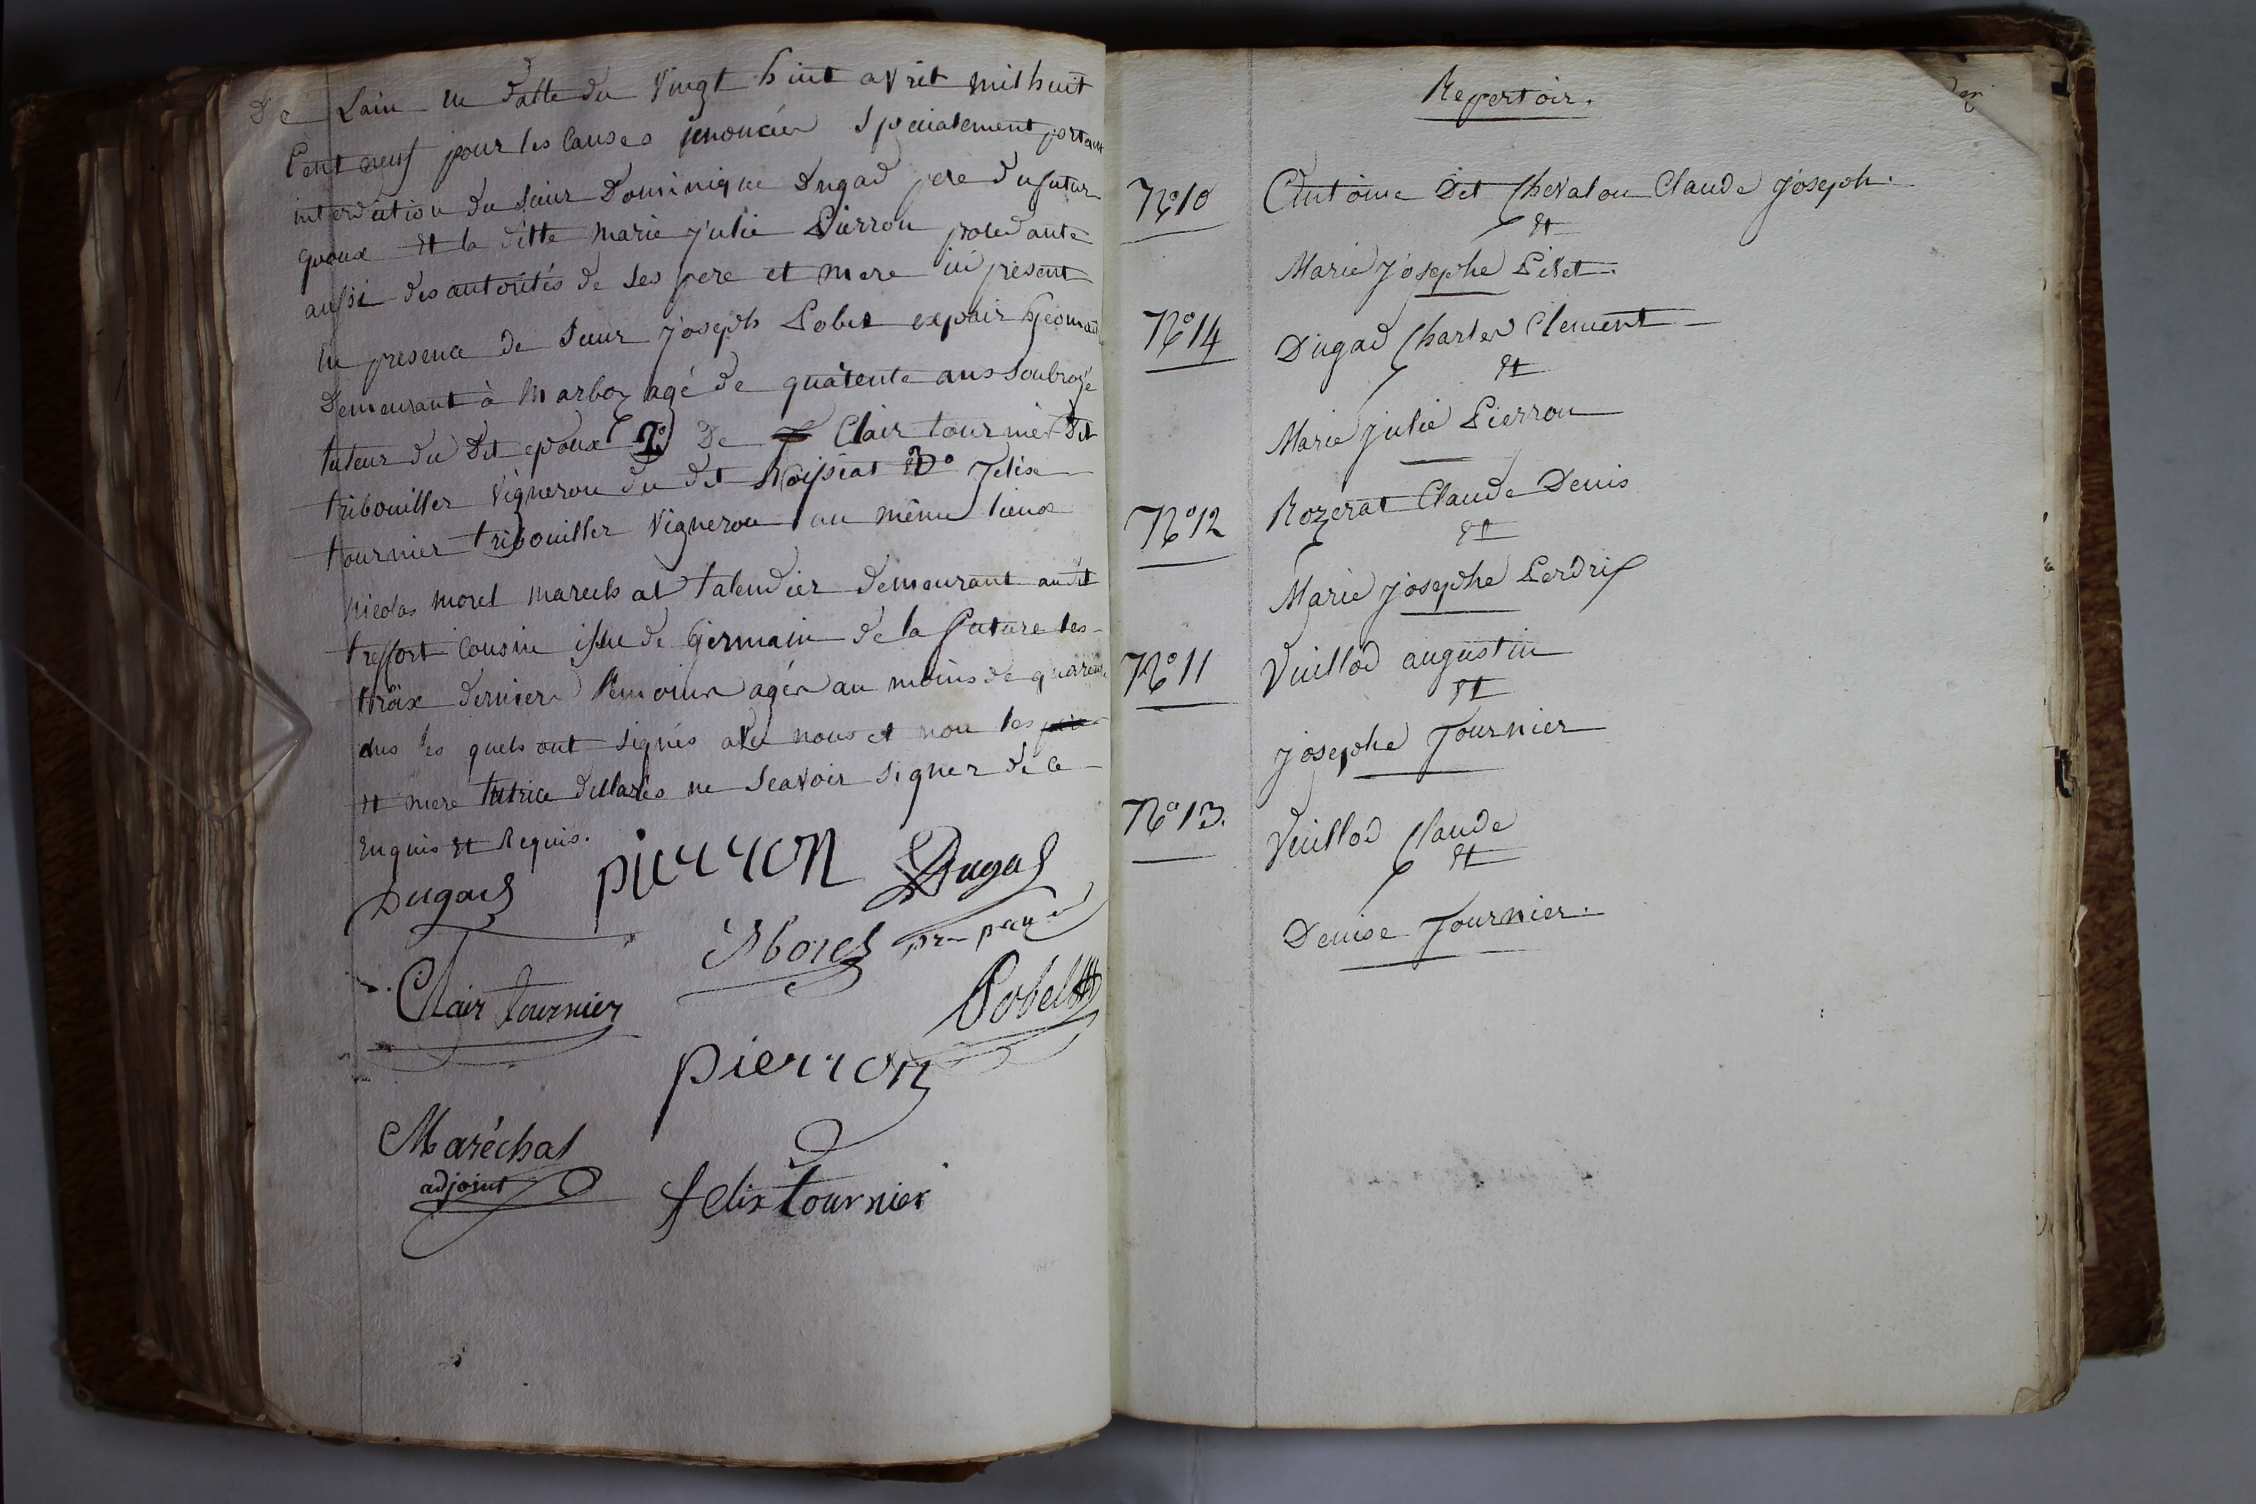 De Lain en datte du vingt huit avril mil huit
Cent neuf pour les causes enoncées specialement portant
interdiction du sieur Dominique Dugad pere du futur
epoux et la ditte marie julie Pierron procedante
aussi des autorités de ses pere et mere ici present
en presence de sieur joseph Pobel expair
demeurant à Marboz agé de quatente ans soubrogé
tuteur du dit epoux de Clair tournier dit
tribouiller vigneron du dit 3o felix
tournier tribouiller vigneron au même lieux
nicolas morel marechal talendier demeurant audit
treffort cousin issu de germain de la future les
troix derniers temoins agés au moins de
ans les quels ont signés avec nous et non les
et mere tutrice dellarés ne scavoir signer de ce
enquis et Requis.
Dugad pierron Dugad
Morel
Clair tournier
Pobel
pierron
Maréchal
adjoint
felix tournier
Repertoir.
No 10 Antoine Dit Chevalon Claude joseph.
et
Marie josephe Pivet.
No 14 Dugad Charles Clement
et
Marie julie Pierron
No 12 Rozerat Claude Denis
et
Marie josephe Perdrix
No 11 Vuillod augustin
et
josephe Tournier
No 13. Vuillod Claude
et
Denise Tournier.